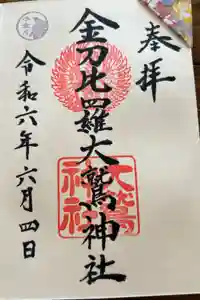 奉拝
金刀比羅大鷲神社
大鷲神社
令和六年六月四日